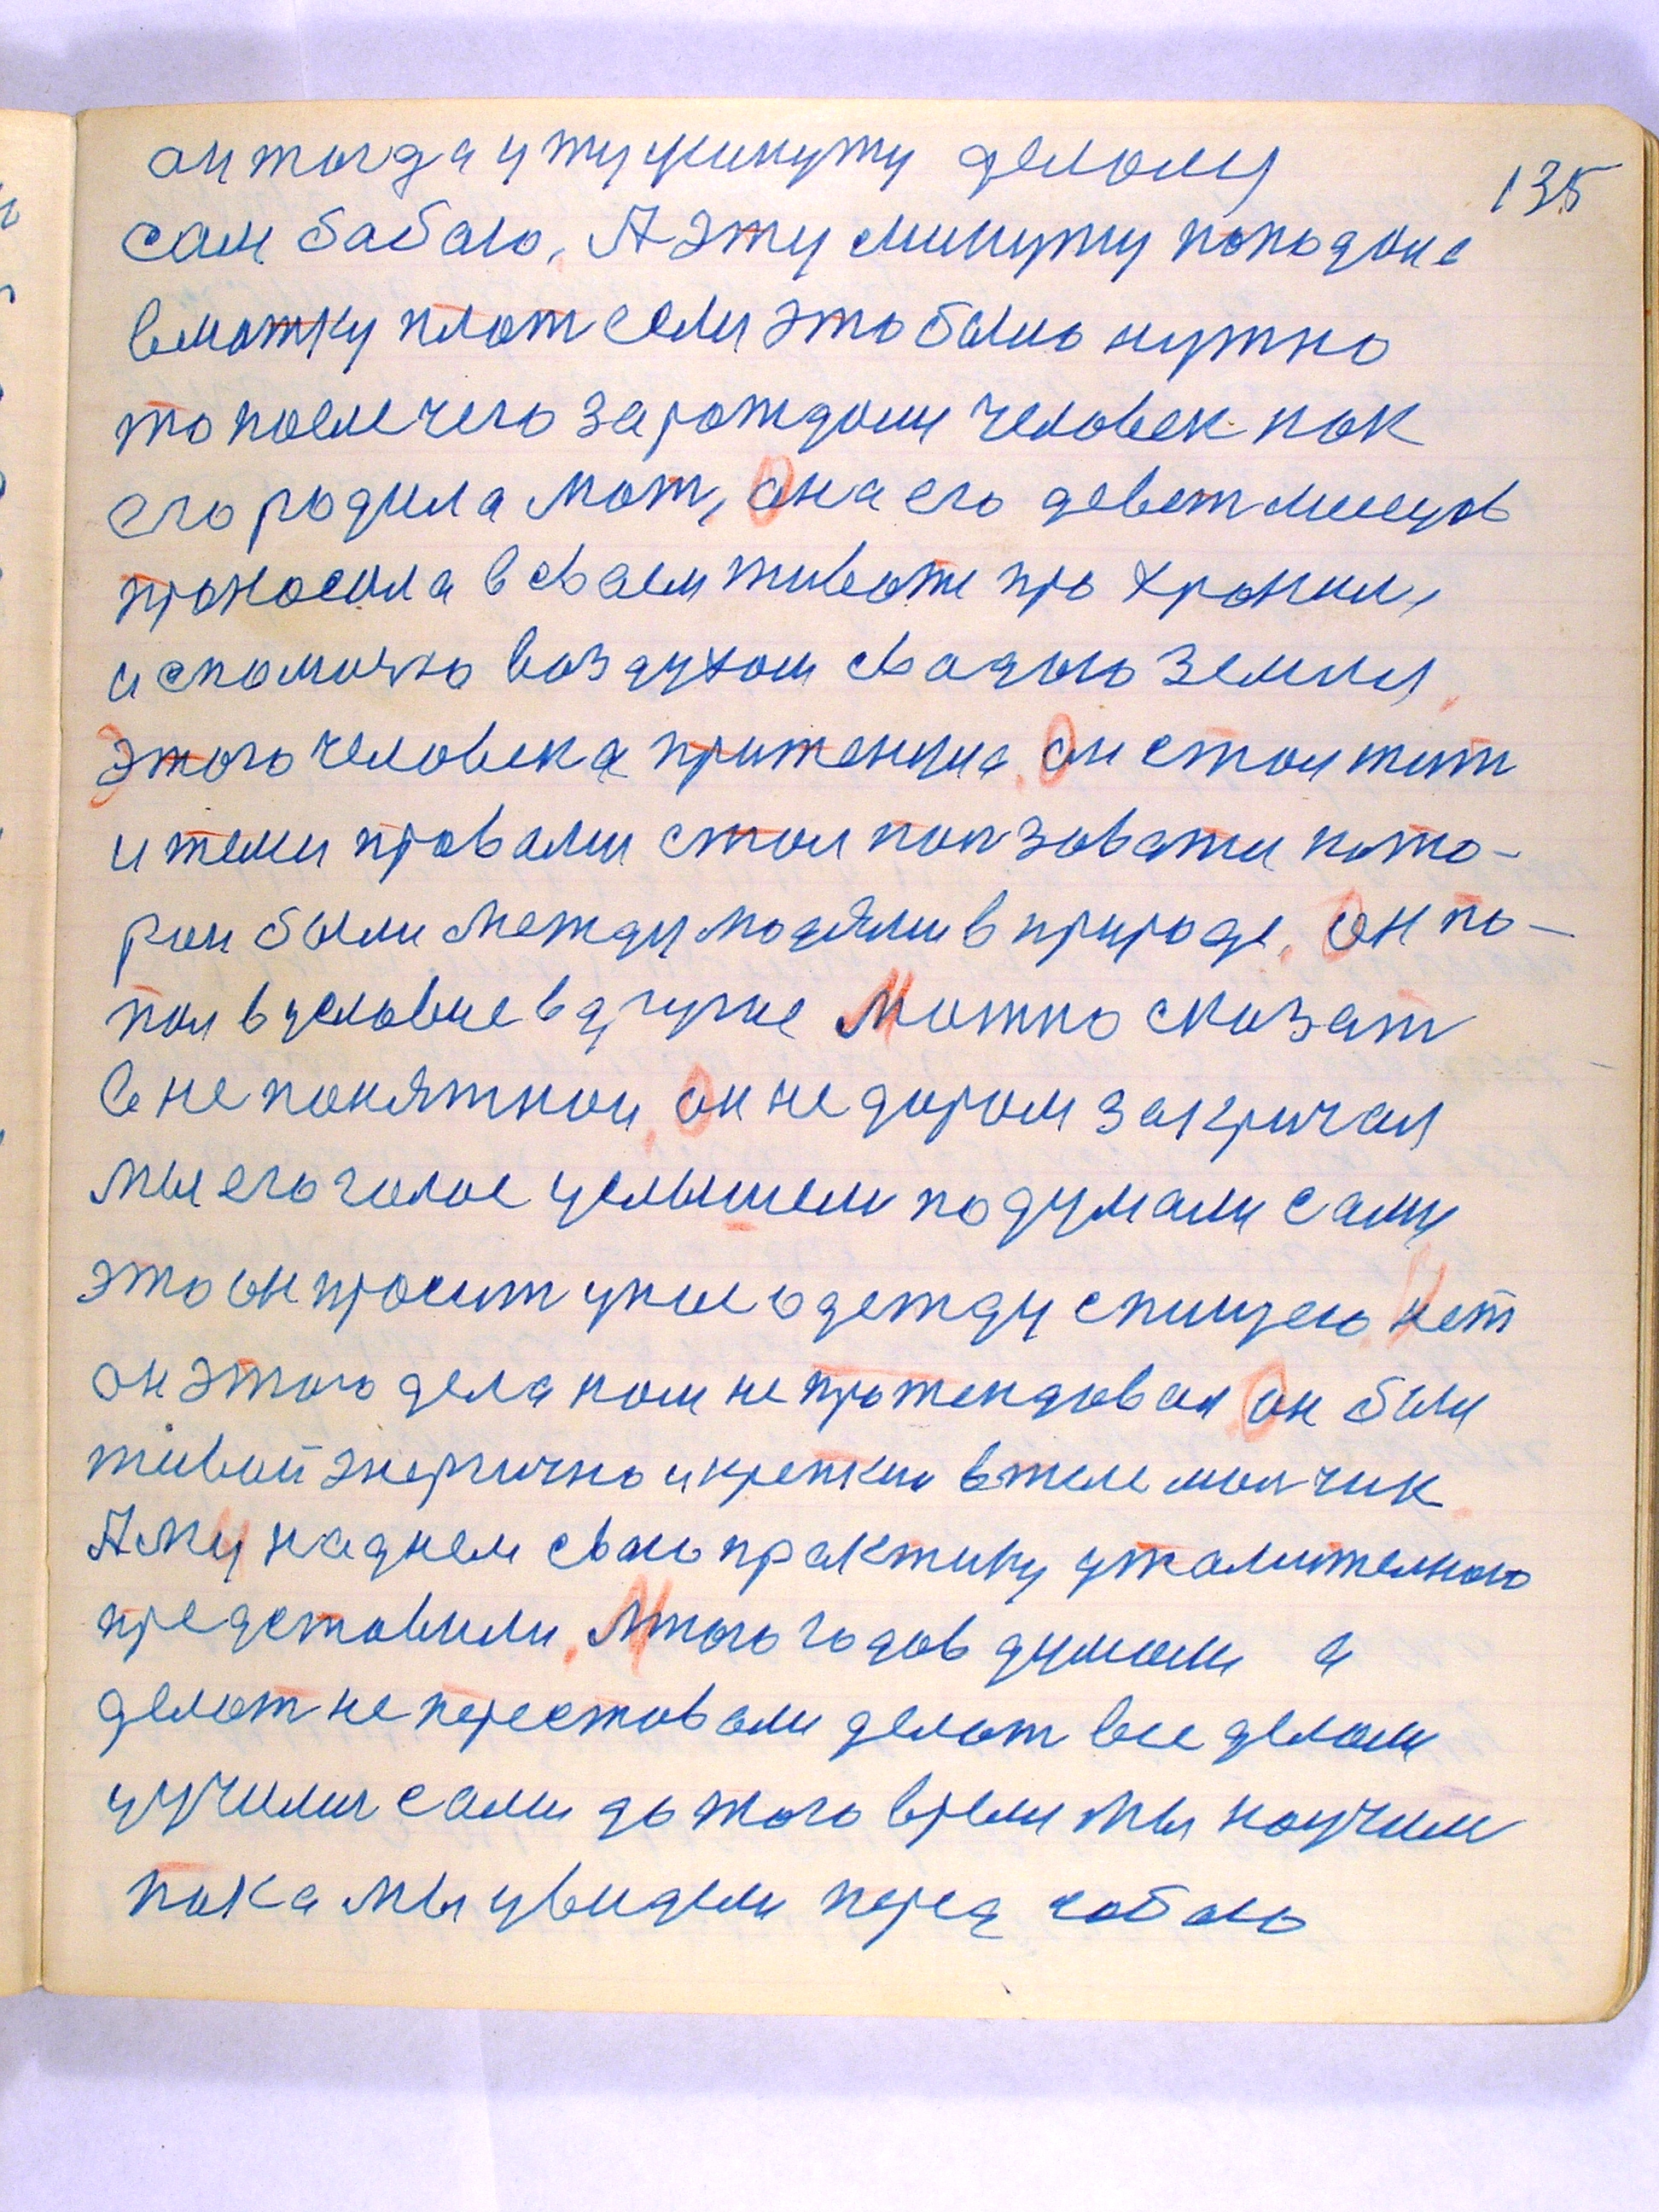 135
он тогда у ту минуту делолы
сам бабаю. А эту минуту попадоие
в матку плот если это было нужно
то после чего зарождали человек как
его родила мат, она его девет месецов
проносила в сваем животе про хронил,
и спомочю воздухом свадою земля
этого человека притенцие. Он стал жит
и теми правами стал ползовати кото-
рои были между людями в природе. Он по-
пал в условие в другие Можно сказат
в не понятнои. Он не даром закричал
мы его голос услышели подумали сами
это он просит у нас одежду с пищею. Нет
он этого дела нам не протендовал Он были
живой энергично и крепкии в теле малчик
А мы на днем свою практику ужалителною
предстовили. Много годов думали а
делат не перестовали делат все делали
и учились сами до того время мы научили
пока мы увидели перед собаю